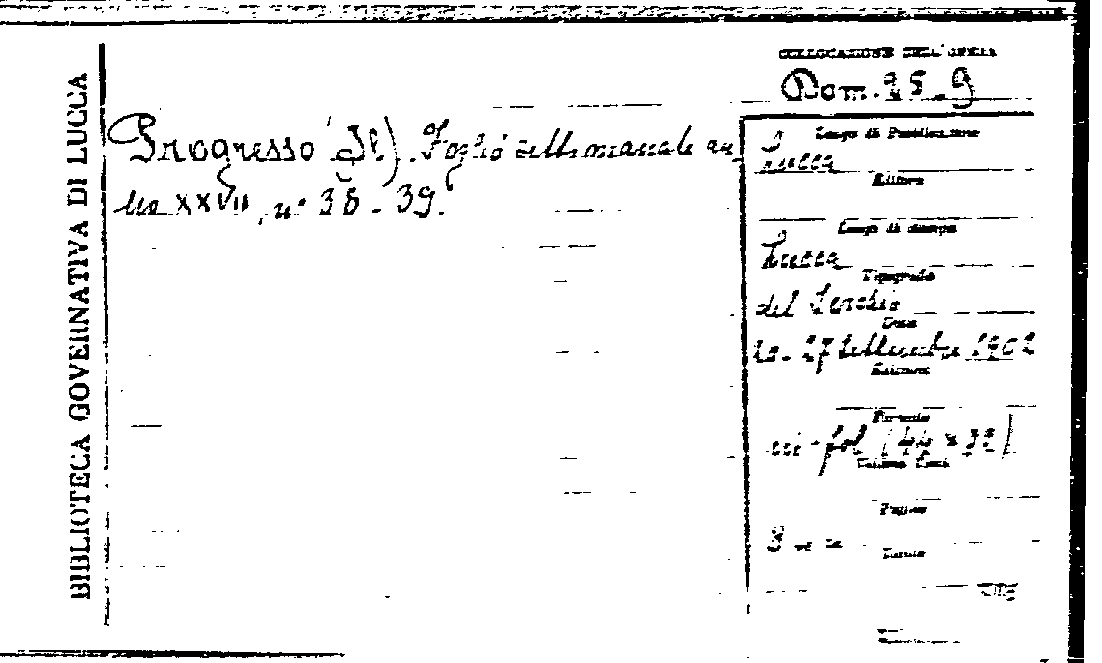 BIBLIOTECA GOVERNATIVA DI LUCCA
COLLOCAZIONE DELL'OPERA
Dom. 25. 9
Progresso (Il). Foglio settimanale an
no XXVII, n° 38 - 39.
Luogo di Pubblicazione
Lucca
Editore
Luogo di stampa
Lucca
Tipografia
del Serchio
Data
20-27 settembre 1902
Edizione
Formato
in-fol (44 x 32)
Volume
Pagine